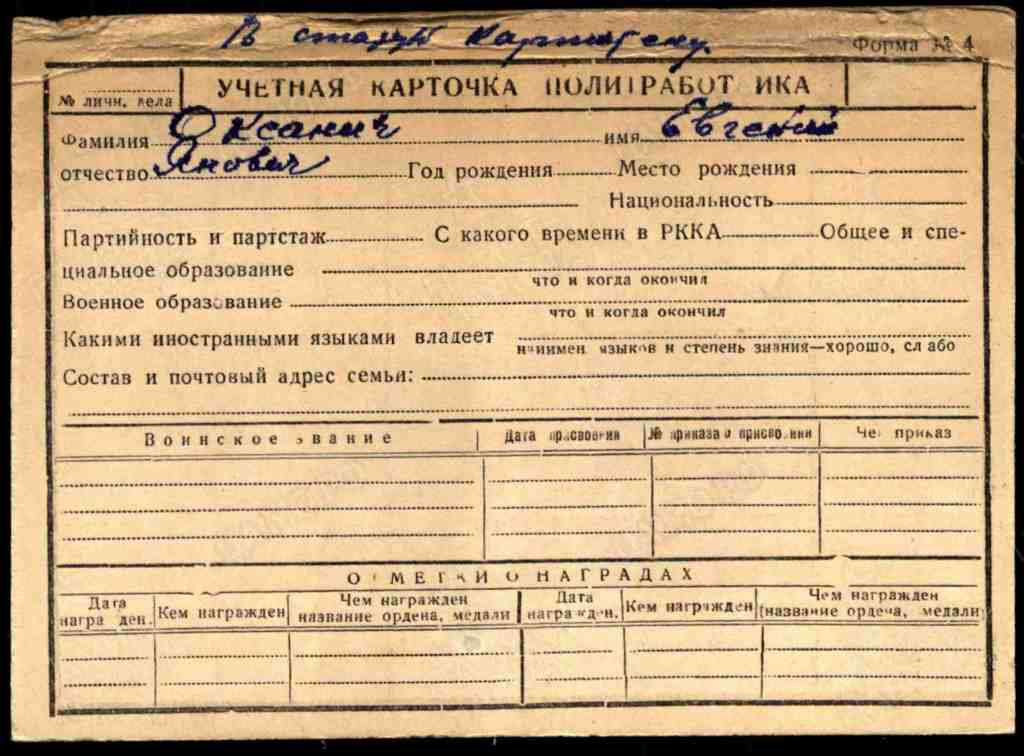 В старую картотеку.
Форма № 4
№ личн. дела
УЧЕТНАЯ КАРТОЧКА ПОЛИТРАБОТ ИКА
Фамилия Оксанич имя Евгений
отчество Янович Год рождения Место рождения
Национальность
Партийность и партстаж С какого времени в РККА Общее и спе-
циальное образование
что и когда окончил
Военное образование
что и когда окончил
Какими иностранными языками владеет
наимен языков и степень знания—хорошо, сл або
Состав и почтовый адрес семьи:
Воинское звание Дата присвоения № приказа о присвоении Чей приказ
ОТМЕТКИ О НАГРАДАХ
Дата награжден. Кем награжден Чем награжден название ордена, медали Дата награжден. Кем награжден Чем награжден (название ордена, медали)